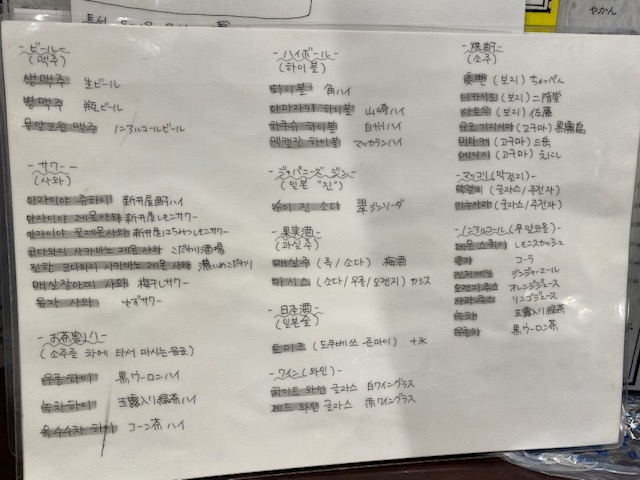 やかん
-ビール-
(맥주)
생맥주 生ビール
병맥주 瓶ビール
무알코올 맥주 ノンアルコールビール
-サワー-
(사와)
아라이야 츄하이 新井屋酎ハイ
아라이야 레몬사와 新井屋レモンサワー
아라이야 꿀레몬사와 新井屋はちみつレモンサワー
코다와리 사카바노 레몬 사와 こだわり酒場
진한 코다와리 사카바노 레몬 사와 濃いめこだわり
매실장아찌 사와 梅干しサワー
유자 사와 ゆずサワー
-お茶割り-
(소주를 차에 타서 마시는 음료)
우롱 하이 黒ウーロンハイ
녹차하이 玉露入り緑茶ハイ
옥수수차 하이 コーン茶ハイ
-ハイボール-
(하이볼)
하이볼 角ハイ
야마자키 하이볼 山崎ハイ
하쿠슈 하이볼 白州ハイ
맥캘란 하이볼 マッカランハイ
-ジャパニーズ ジン-
(일본 "진")
수이 진 소다 翠ジンソーダ
-果実酒-
(과실주)
매실주 (록/소다) 梅酒
카시스 (소다/우롱/오렌지) カシス
-日本酒-
(일본술)
토미즈 (도쿠베쓰 준마이) 十水
-ワイン(와인)-
화이트 와인 글라스 白ワイングラス
레드 와인 글라스 赤ワイングラス
-焼酎-
(소주)
(보리) ちょっぺん
니카이도 (보리) 二階堂
사토우 (보리) 佐藤
쿠로 키리시마 (고구마) 黒霧島
미타케 (고구마) 三岳
(고구마)
-マッコリ(막걸리)-
막걸리 (글라스/주전자)
(글라스/주전자)
-ノンアルコール(무알코올)-
레몬 스쿼시 レモンスカッシュ
콜라 コーラ
진저에일 ジンジャーエール
오렌지주스 オレンジジュース
사과주스 リンゴジュース
녹차 玉露入り緑茶
우롱차 黒ウーロン茶